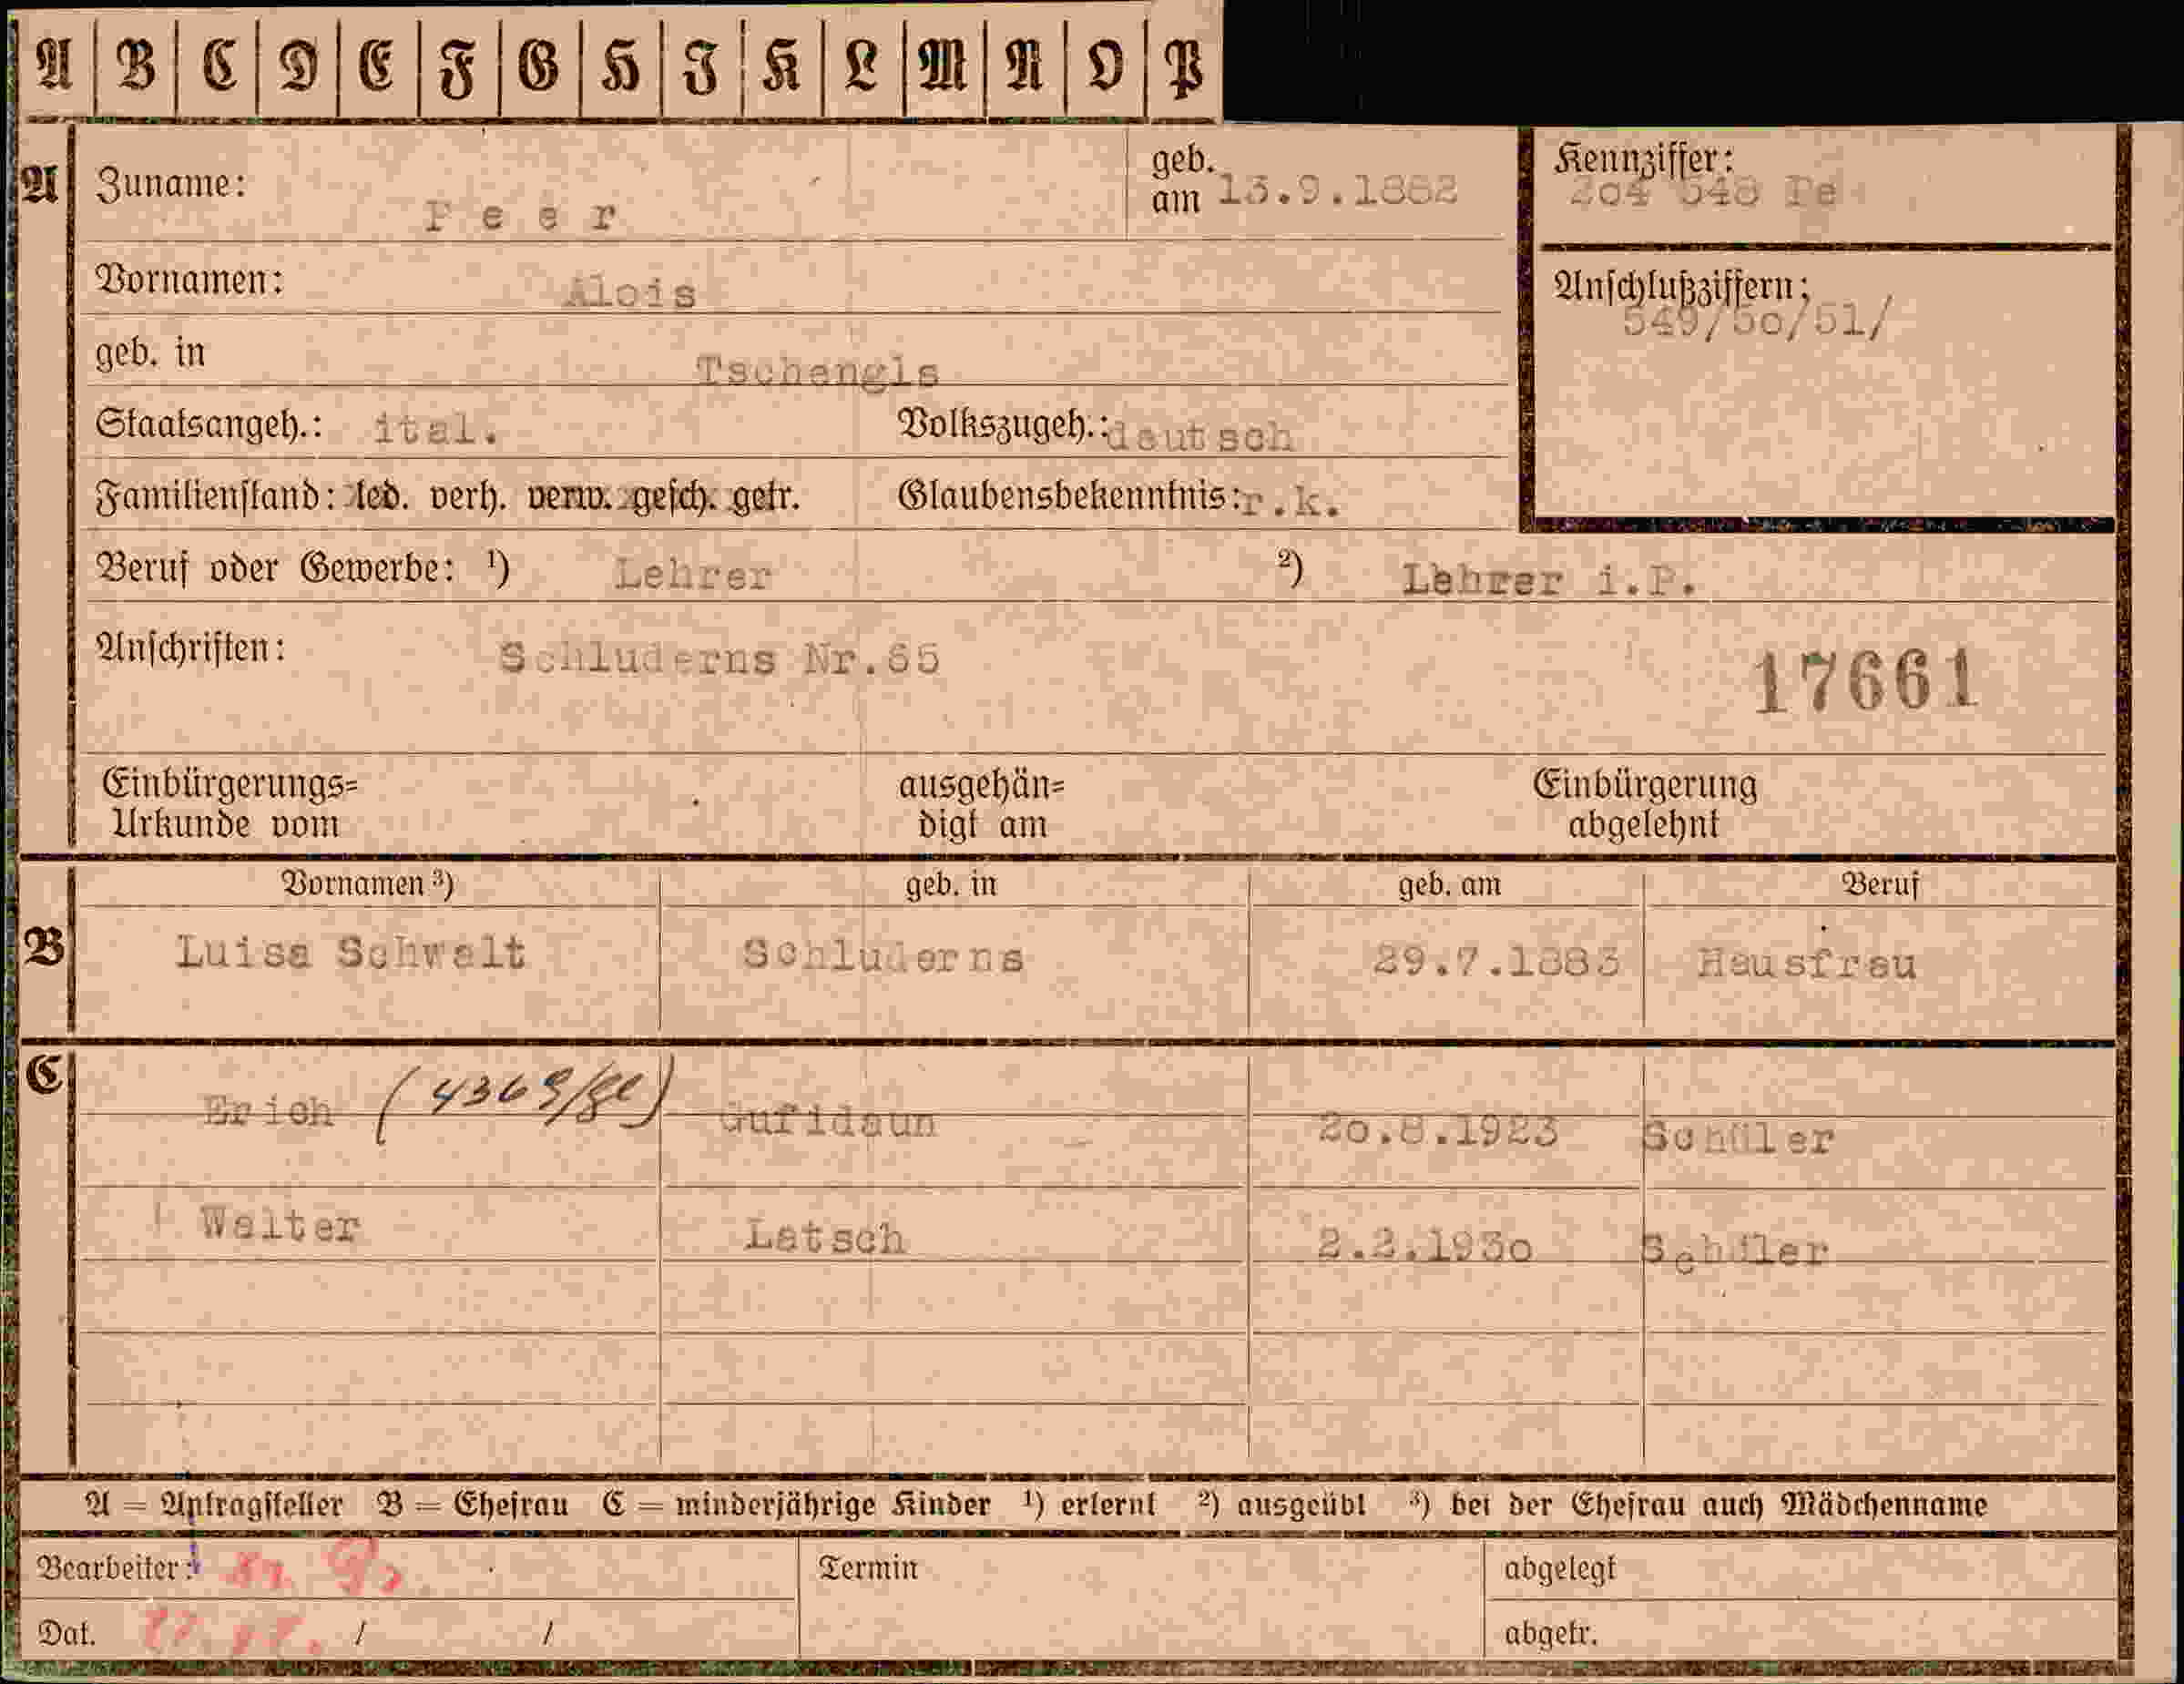 A B C D E F G H J K L M N O P
A Zuname: geb. am 13.9.1882 Kennziffer:
Vornamen: Alois Anschlußziffern:
549/50/51/
geb. in Tschengls
Staatsangeh.: ital. Volkszugeh.: deutsch
Familienstand: led. verh. verw. gesch. getr. Glaubensbekenntnis: r.k.
Beruf oder Gewerbe: ¹) Lehrer ²) Lehrer i.P.
Anschriften: Schluderns Nr.65 17661
Einbürgerungs= ausgehän= Einbürgerung
Urkunde vom digt am abgelehnt
Vornamen ³) geb. in geb. am Beruf
B Luisa Schwalt Schluderns 29.7.1883 Hausfrau
C Erich Gufidaun 20.8.1923 Schüler
Walter Latsch 2.2.1930 Schüler
A = Antragsteller B = Ehefrau C = minderjährige Kinder ¹) erlernt ²) ausgeübt ³) bei der Ehefrau auch Mädchenname
Bearbeiter: Termin abgelegt
Dat. / / abgetr.